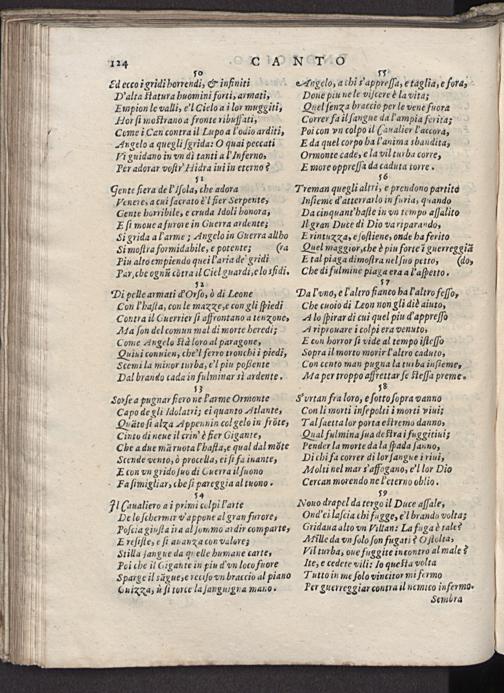 124 CANTO
50
Ed ecco i gridi horrendi, & infiniti
D'alta statura huomini forti, armati,
Empion le valli, e'l Cielo a i lor muggiti,
Hor si mostrano a fronte ribuffati,
Come i Can contra il Lupo a l'odio arditi,
Angelo a quegli sgrida: O quai peccati
Vi guidano in vn dì tanti a l'Inferno,
Per adorar vostr'Hidra iui in eterno?
51
Gente fiera de l'Isola, che adora
Venere, a cui sacrato è'l fier Serpente,
Gente horribile, e cruda Idoli honora,
E si moue a furore in Guerra ardente;
Si grida a l'arme; Angelo in Guerra allho
Si mostra formidabile, e potente; (ra
Piu alto empiendo quei l'aria de' gridi
Par, che ogni cōtra il Ciel guardi, e lo sfidi.
52
Di pelle armati d'Orso, ò di Leone
Con l'hasta, con le mazze, e con gli spiedi
Contra il Guerrier si affrontano a tenzone,
Ma son del comun mal di morte heredi;
Come Angelo stà loro al paragone,
Quiui conuien, che'l ferro tronchi i piedi,
Scemi la minor turba, e'l piu possente
Dal brando cada in fulminar sì ardente.
53
Sorse a pugnar fiero ne l'arme Ormonte
Capo de gli Idolatri; ei quanto Atlante,
Quāto si alza Appennin col gelo in frōte,
Cinto di neue il crin' è fier Gigante,
Che a due mā ruota l'hasta, e qual dal mōte
Scende vento, ò procella, ei si fa inante,
E con vn grido suo di Guerra il suono
Fa simigliar, che si pareggia al tuono.
54
Il Caualiero a i primi colpi l'arte
De lo schermir v'appone al gran furore,
Poscia giusta ira al sommo ardir comparte,
E resiste, e si auanza con valore;
Stilla sangue da quelle humane carte,
Poi che il Gigante in piu d'vn loco fuore
Sparge il sāgue, e reciso vn braccio al piano
Guizza, ù si torce la sanguigna mano.
55
Angelo, a chi s'appressa, e taglia, e fora,
Doue piu ne le viscere è la vita;
Quel senza braccio per le vene fuora
Correr fa il sangue da l'ampia ferita;
Poi con vn colpo il Caualier l'accora,
E da quel corpo ha l'anima sbandita,
Ormonte cade, e la vil turba corre,
E more oppressa da caduta torre.
56
Treman quegli altri, e prendono partito
Insieme d'atterrarlo in furia, quando
Da cinquant'haste in vn tempo assalito
Il gran Duce di Dio va riparando,
E rintuzza, e sostiene, onde ha ferito
Quel maggior, che è piu forte; ei guerreggiā
E tal piaga dimostra nel suo petto, (do,
Che di fulmine piaga era a l'aspetto.
57
Da l'vno, e l'altro fianco ha l'altro fesso,
Che cuoio di Leon non gli diè aiuto,
A lo spirar di cui quel piu d'appresso
A riprouare i colpi era venuto,
E con horror si vide al tempo istesso
Sopra il morto morir l'altro caduto,
Con cento man pugna la turba insieme,
Ma per troppo affrettar se stessa preme.
58
S'vrtan fra loro, e sotto sopra vanno
Con li morti insepolti i morti viui;
Tal saetta lor porta estremo danno,
Qual fulmina sua destra i fuggitiui;
Pender la morte da la spada sanno,
Di chi fa correr di lor sangue i riui,
Molti nel mar s'affogano, e'l lor Dio
Cercan morendo ne l'eterno oblio.
59
Nouo drapel da tergo il Duce assale,
Ond'ei lascia chi fugge, e'l brando volta;
Gridaua alto vn Villan: La fuga è tale?
Mille da vn solo son fugati? O stolta,
Vil turba, oue fuggite incontro al male?
Ite, e cedete vili: Io questa volta
Tutto in me solo vincitor mi fermo
Per guerreggiar contra il nemico infermo.
Sembra